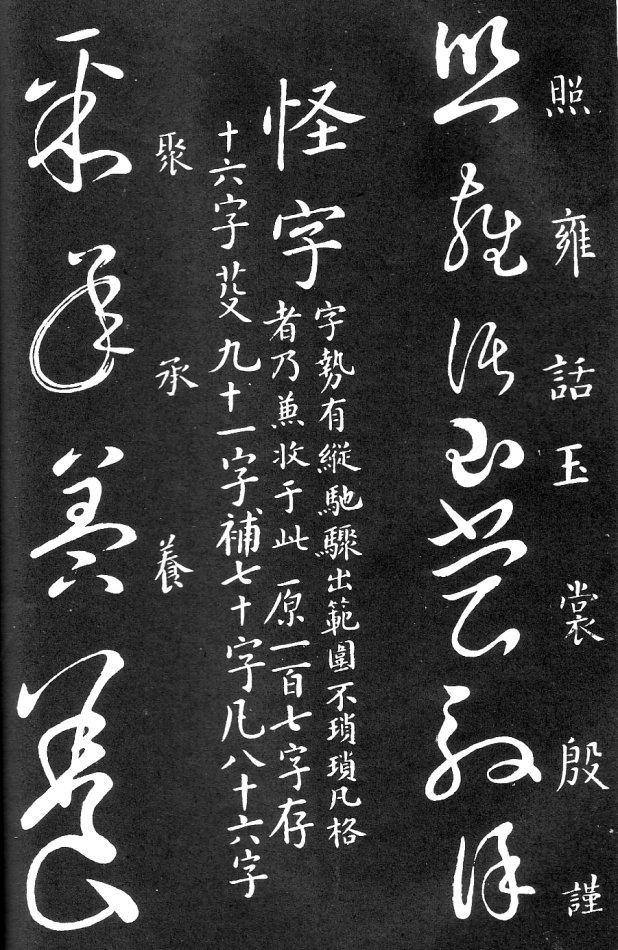 照雍話玉裳殷謹
照雍話玉裳殷謹
怪字
字勢有縱馳驟出範圍不瑣瑣凡格
者乃兼收于此原一百七字存
十六字芟九十一字補七十字凡八十六字
聚承養
聚承養養